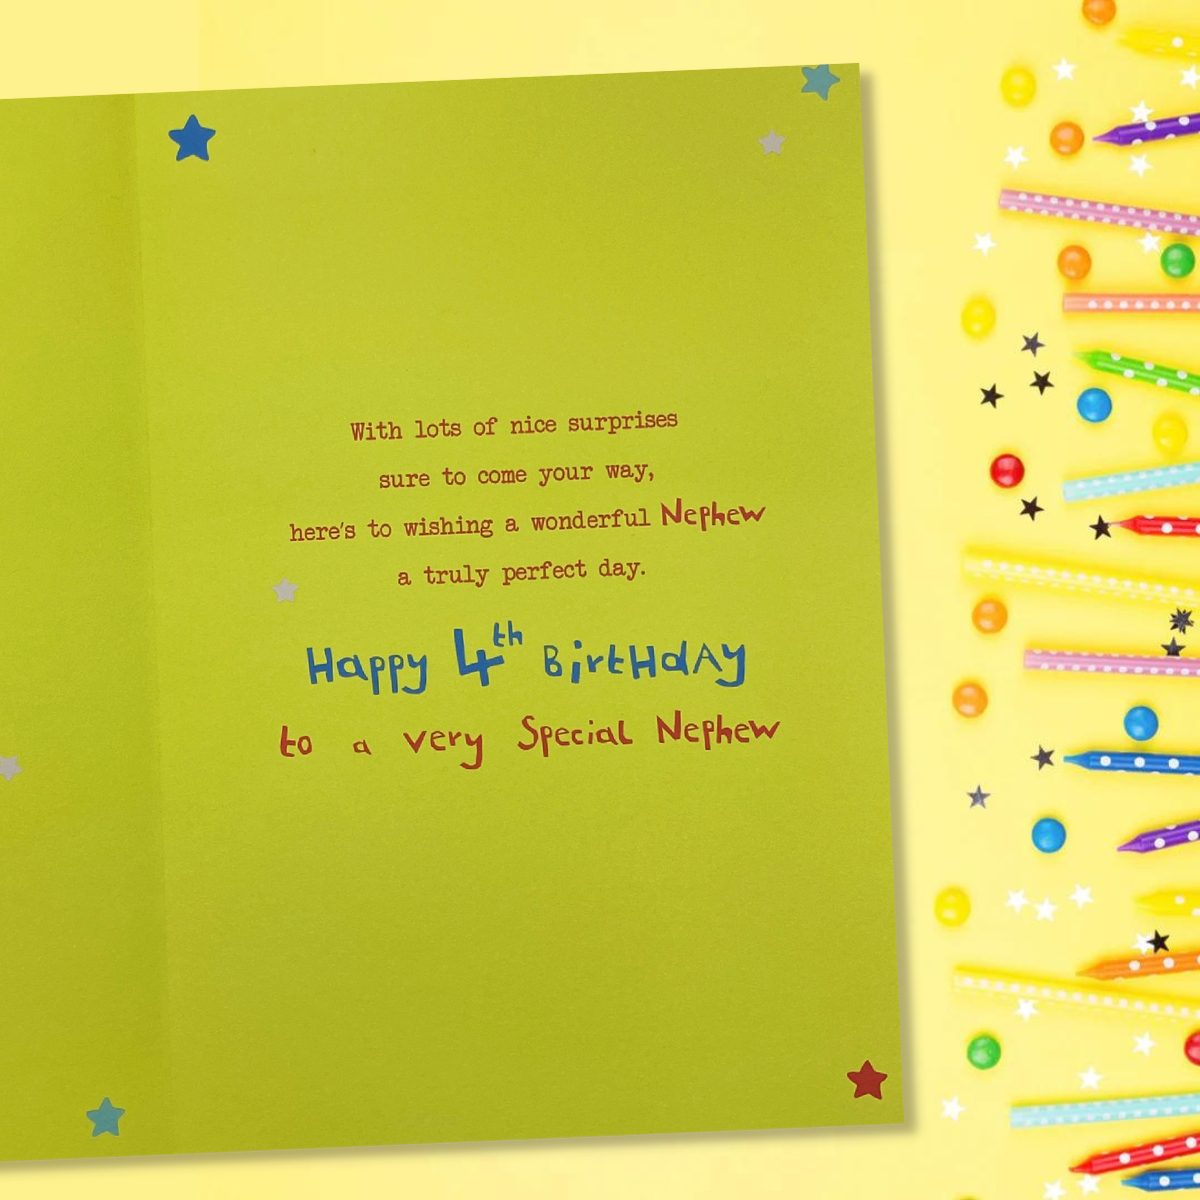 With lots of nice surprises
sure to come your way,
here's to wishing a wonderful Nephew
a truly perfect day.
Happy 4th BirtHdAy
to a very Special Nephew